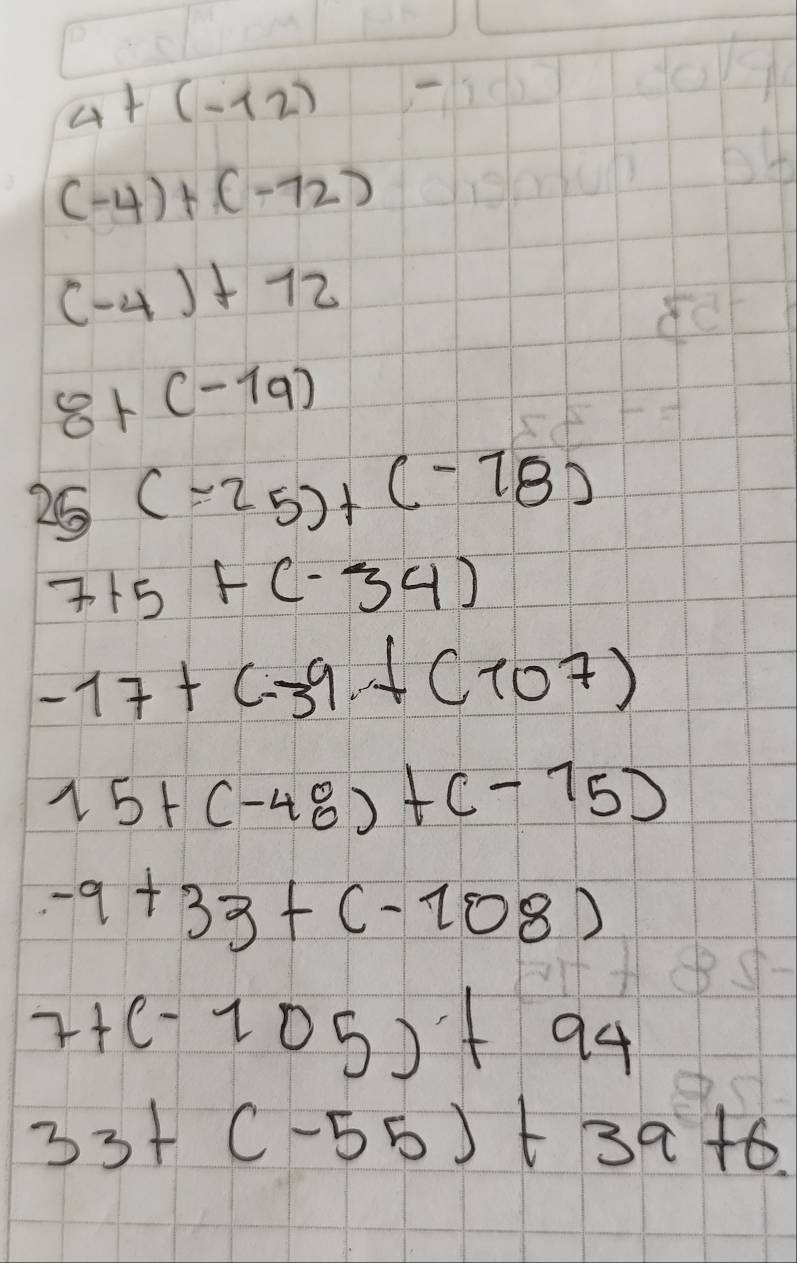 4+(-12)
(-4)+(-12)
(-4)+12
8+(-19)
(-25)+(-18)
7+5+(-34)
-17+(-39+(107)
15+(-48)+(-15)
-9+33+(-108)
7+(-105)+94
33+(-55)+39+6.